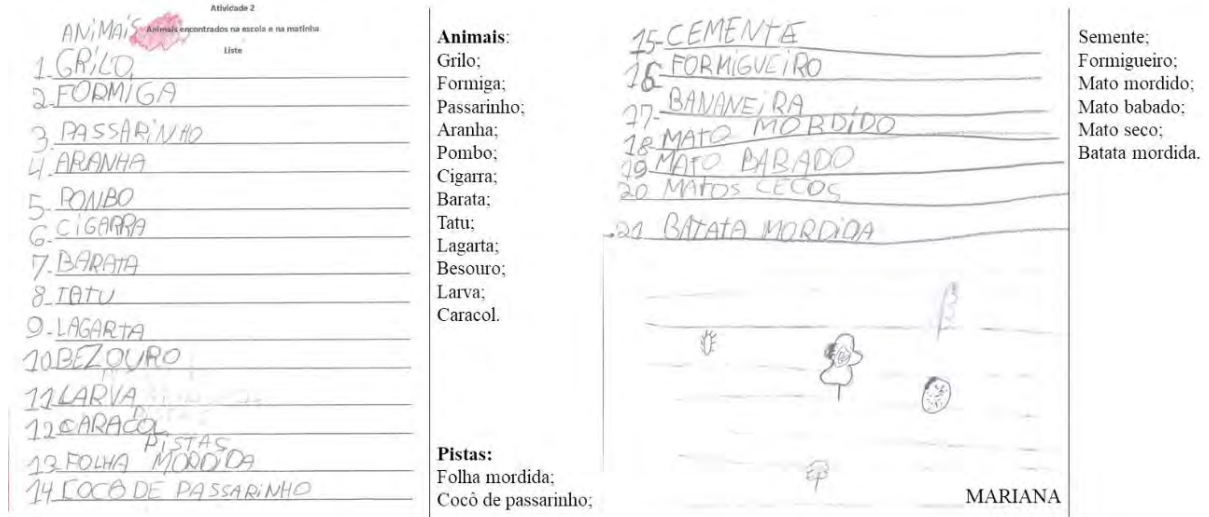 Atividade 2
ANiMAiS
Animais encontrados na escola e na matinha
Liste
1-GRiLO
2-FORMiGA
3-PASSARiNHO
4-ARANHA
5-PONBO
6-CiGARRA
7-BARATA
8-TATU
9-LAGARTA
10BEZOURO
11LARVA
12CARACOL
PiSTAS
13-FOLHA MORDiDA
14 COCÔ DE PASSARiNHO
Animais:
Grilo;
Formiga;
Passarinho;
Aranha;
Pombo;
Cigarra;
Barata;
Tatu;
Lagarta;
Besouro;
Larva;
Caracol.
Pistas:
Folha mordida;
Cocô de passarinho;
15-CEMENTE
16-FORMiGUEiRO
17-BANANEiRA
18 MATO MORDiDO
19 MATO BABADO
20 MATOS CECOS
21 BATATA MORDiDA
MARIANA
Semente;
Formigueiro;
Mato mordido;
Mato babado;
Mato seco;
Batata mordida.